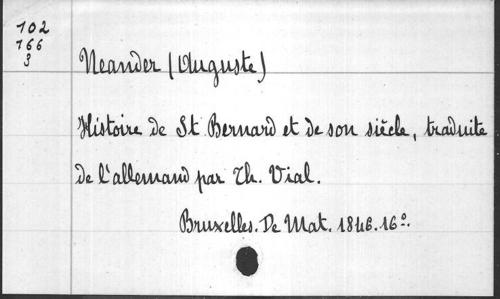 102
166
3
Neander (Auguste)
Histoire de St Bernard et de son siècle, traduite
de l'allemand par Th. Vial.
Bruxelles. De Mat. 1846. 16°.